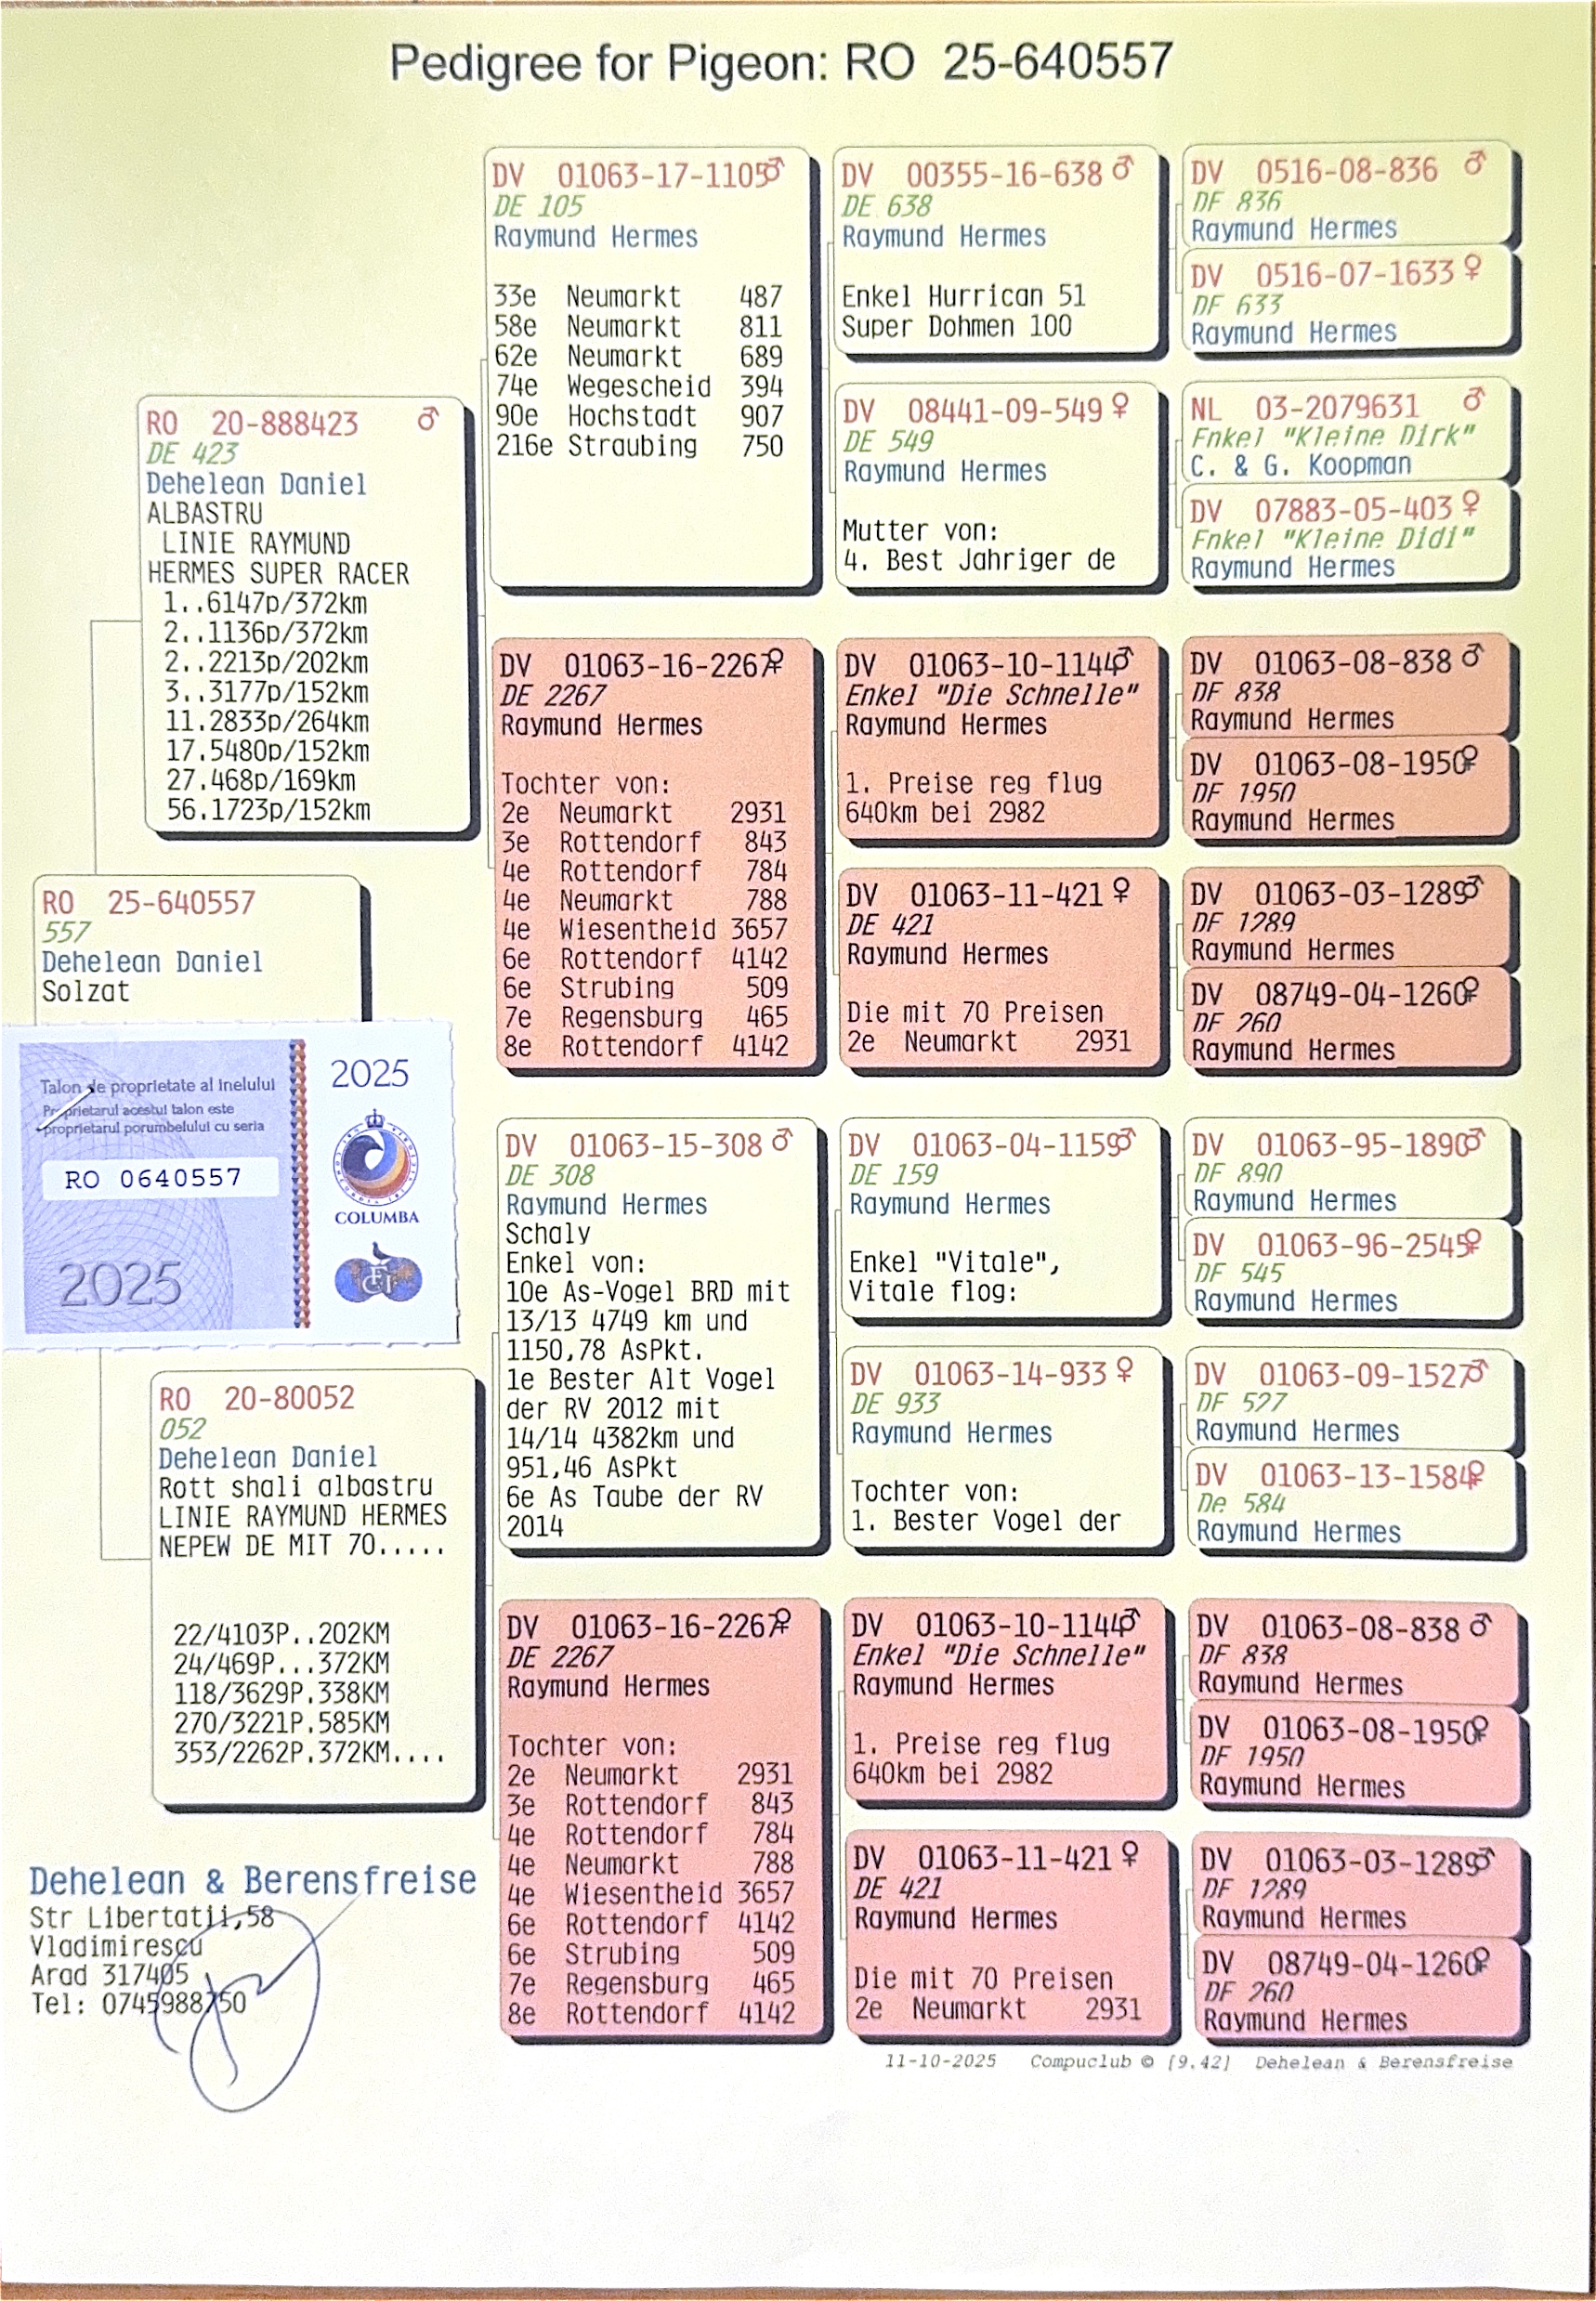 Pedigree for Pigeon: RO 25-640557
RO 25-640557
557
Dehelean Daniel
Solzat
Talon de proprietate al inelului
Proprietarul acestui talon este
proprietarul porumbelului cu seria
RO 0640557
2025
2025
COLUMBA
FCI
RO 20-888423 ♂
DE 423
Dehelean Daniel
ALBASTRU
LINIE RAYMUND
HERMES SUPER RACER
1..6147p/372km
2..1136p/372km
2..2213p/202km
3..3177p/152km
11.2833p/264km
17.5480p/152km
27.468p/169km
56.1723p/152km
RO 20-80052
052
Dehelean Daniel
Rott shali albastru
LINIE RAYMUND HERMES
NEPEW DE MIT 70.....
22/4103P..202KM
24/469P...372KM
118/3629P.338KM
270/3221P.585KM
353/2262P.372KM....
DV 01063-17-1105♂
DE 105
Raymund Hermes
33e Neumarkt 487
58e Neumarkt 811
62e Neumarkt 689
74e Wegescheid 394
90e Hochstadt 907
216e Straubing 750
DV 01063-16-2267♀
DE 2267
Raymund Hermes
Tochter von:
2e Neumarkt 2931
3e Rottendorf 843
4e Rottendorf 784
4e Neumarkt 788
4e Wiesentheid 3657
6e Rottendorf 4142
6e Strubing 509
7e Regensburg 465
8e Rottendorf 4142
DV 01063-15-308 ♂
DE 308
Raymund Hermes
Schaly
Enkel von:
10e As-Vogel BRD mit
13/13 4749 km und
1150,78 AsPkt.
1e Bester Alt Vogel
der RV 2012 mit
14/14 4382km und
951,46 AsPkt
6e As Taube der RV
2014
DV 01063-16-2267♀
DE 2267
Raymund Hermes
Tochter von:
2e Neumarkt 2931
3e Rottendorf 843
4e Rottendorf 784
4e Neumarkt 788
4e Wiesentheid 3657
6e Rottendorf 4142
6e Strubing 509
7e Regensburg 465
8e Rottendorf 4142
DV 00355-16-638 ♂
DE 638
Raymund Hermes
Enkel Hurrican 51
Super Dohmen 100
DV 08441-09-549 ♀
DE 549
Raymund Hermes
Mutter von:
4. Best Jahriger de
DV 01063-10-1144♂
Enkel "Die Schnelle"
Raymund Hermes
1. Preise reg flug
640km bei 2982
DV 01063-11-421 ♀
DE 421
Raymund Hermes
Die mit 70 Preisen
2e Neumarkt 2931
DV 01063-04-1159♂
DE 159
Raymund Hermes
Enkel "Vitale",
Vitale flog:
DV 01063-14-933 ♀
DE 933
Raymund Hermes
Tochter von:
1. Bester Vogel der
DV 01063-10-1144♂
Enkel "Die Schnelle"
Raymund Hermes
1. Preise reg flug
640km bei 2982
DV 01063-11-421 ♀
DE 421
Raymund Hermes
Die mit 70 Preisen
2e Neumarkt 2931
DV 0516-08-836 ♂
DE 836
Raymund Hermes
DV 0516-07-1633 ♀
DE 633
Raymund Hermes
NL 03-2079631 ♂
Enkel "Kleine Dirk"
C. & G. Koopman
DV 07883-05-403 ♀
Enkel "Kleine Didi"
Raymund Hermes
DV 01063-08-838 ♂
DE 838
Raymund Hermes
DV 01063-08-1950♀
DE 1950
Raymund Hermes
DV 01063-03-1289♂
DE 1289
Raymund Hermes
DV 08749-04-1260♀
DE 260
Raymund Hermes
DV 01063-95-1890♂
DE 890
Raymund Hermes
DV 01063-96-2545♀
DE 545
Raymund Hermes
DV 01063-09-1527♂
DE 527
Raymund Hermes
DV 01063-13-1584♀
De 584
Raymund Hermes
DV 01063-08-838 ♂
DE 838
Raymund Hermes
DV 01063-08-1950♀
DE 1950
Raymund Hermes
DV 01063-03-1289♂
DE 1289
Raymund Hermes
DV 08749-04-1260♀
DE 260
Raymund Hermes
Dehelean & Berensfreise
Str Libertatii,58
Vladimirescu
Arad 317405
Tel: 0745988750
11-10-2025 Compuclub © [9.42] Dehelean & Berensfreise